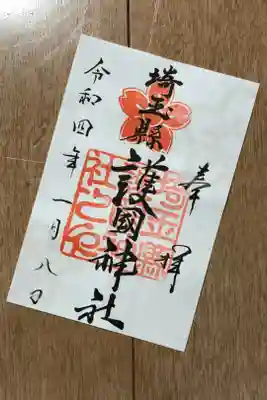 奉拝
埼玉縣護國神社
令和四年一月八日